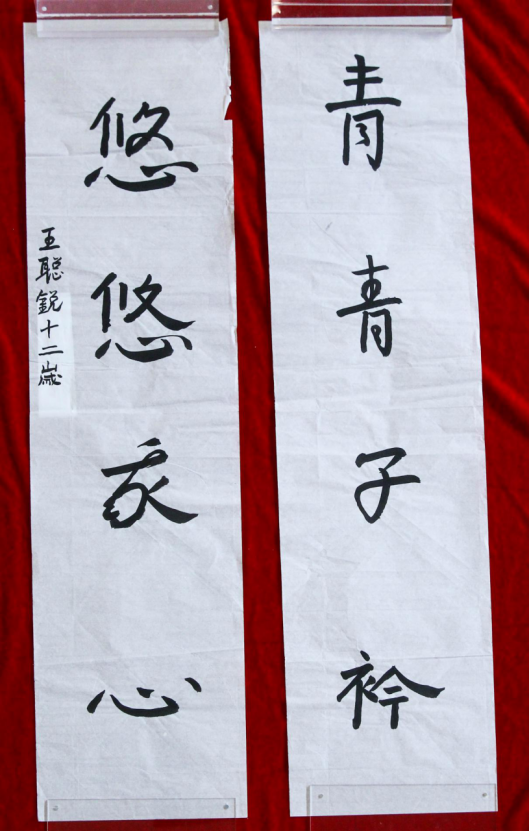 青青子衿
悠悠我心
王聰銳十二歲